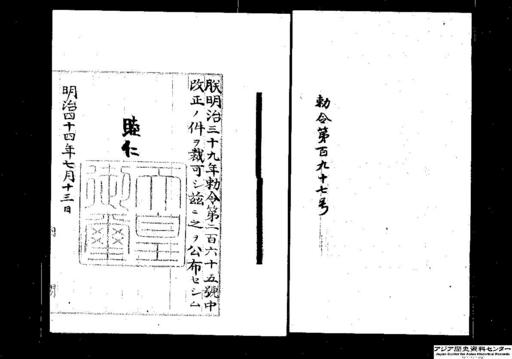 勅令第百九十七号
朕明治三十九年勅令第二百六十五號中
改正ノ件ヲ裁可シ茲ニ之ヲ公布セシム
睦仁
天皇
御璽
明治四十四年七月十三日
アジア歴史資料センター
Japan Center for Asian Historical Records